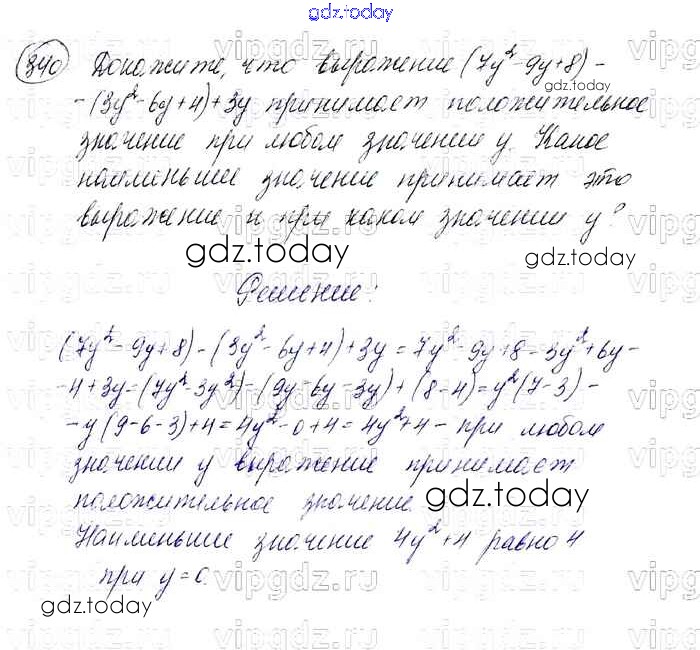 gdz.today
340 Докажите, что выражение (7y² - 9y + 8) -
- (3y² - 6y + 4) + 3y принимает положительное
значение при любом значении y. Какое
наименьшее значение принимает это
выражение и при каком значении y?
gdz.today
gdz.today
gdz.today
Решение:
(7y² - 9y + 8) - (3y² - 6y + 4) + 3y = 7y² - 9y + 8 - 3y² + 6y -
- 4 + 3y = (7y² - 3y²) - (9y - 6y - 3y) + (8 - 4) = y²(7 - 3) -
- y(9 - 6 - 3) + 4 = 4y² - 0 + 4 = 4y² + 4 - при любом
значении y выражение принимает
положительное значение.
gdz.today
Наименьшее значение 4y² + 4 равно 4
при y = 0.
gdz.today